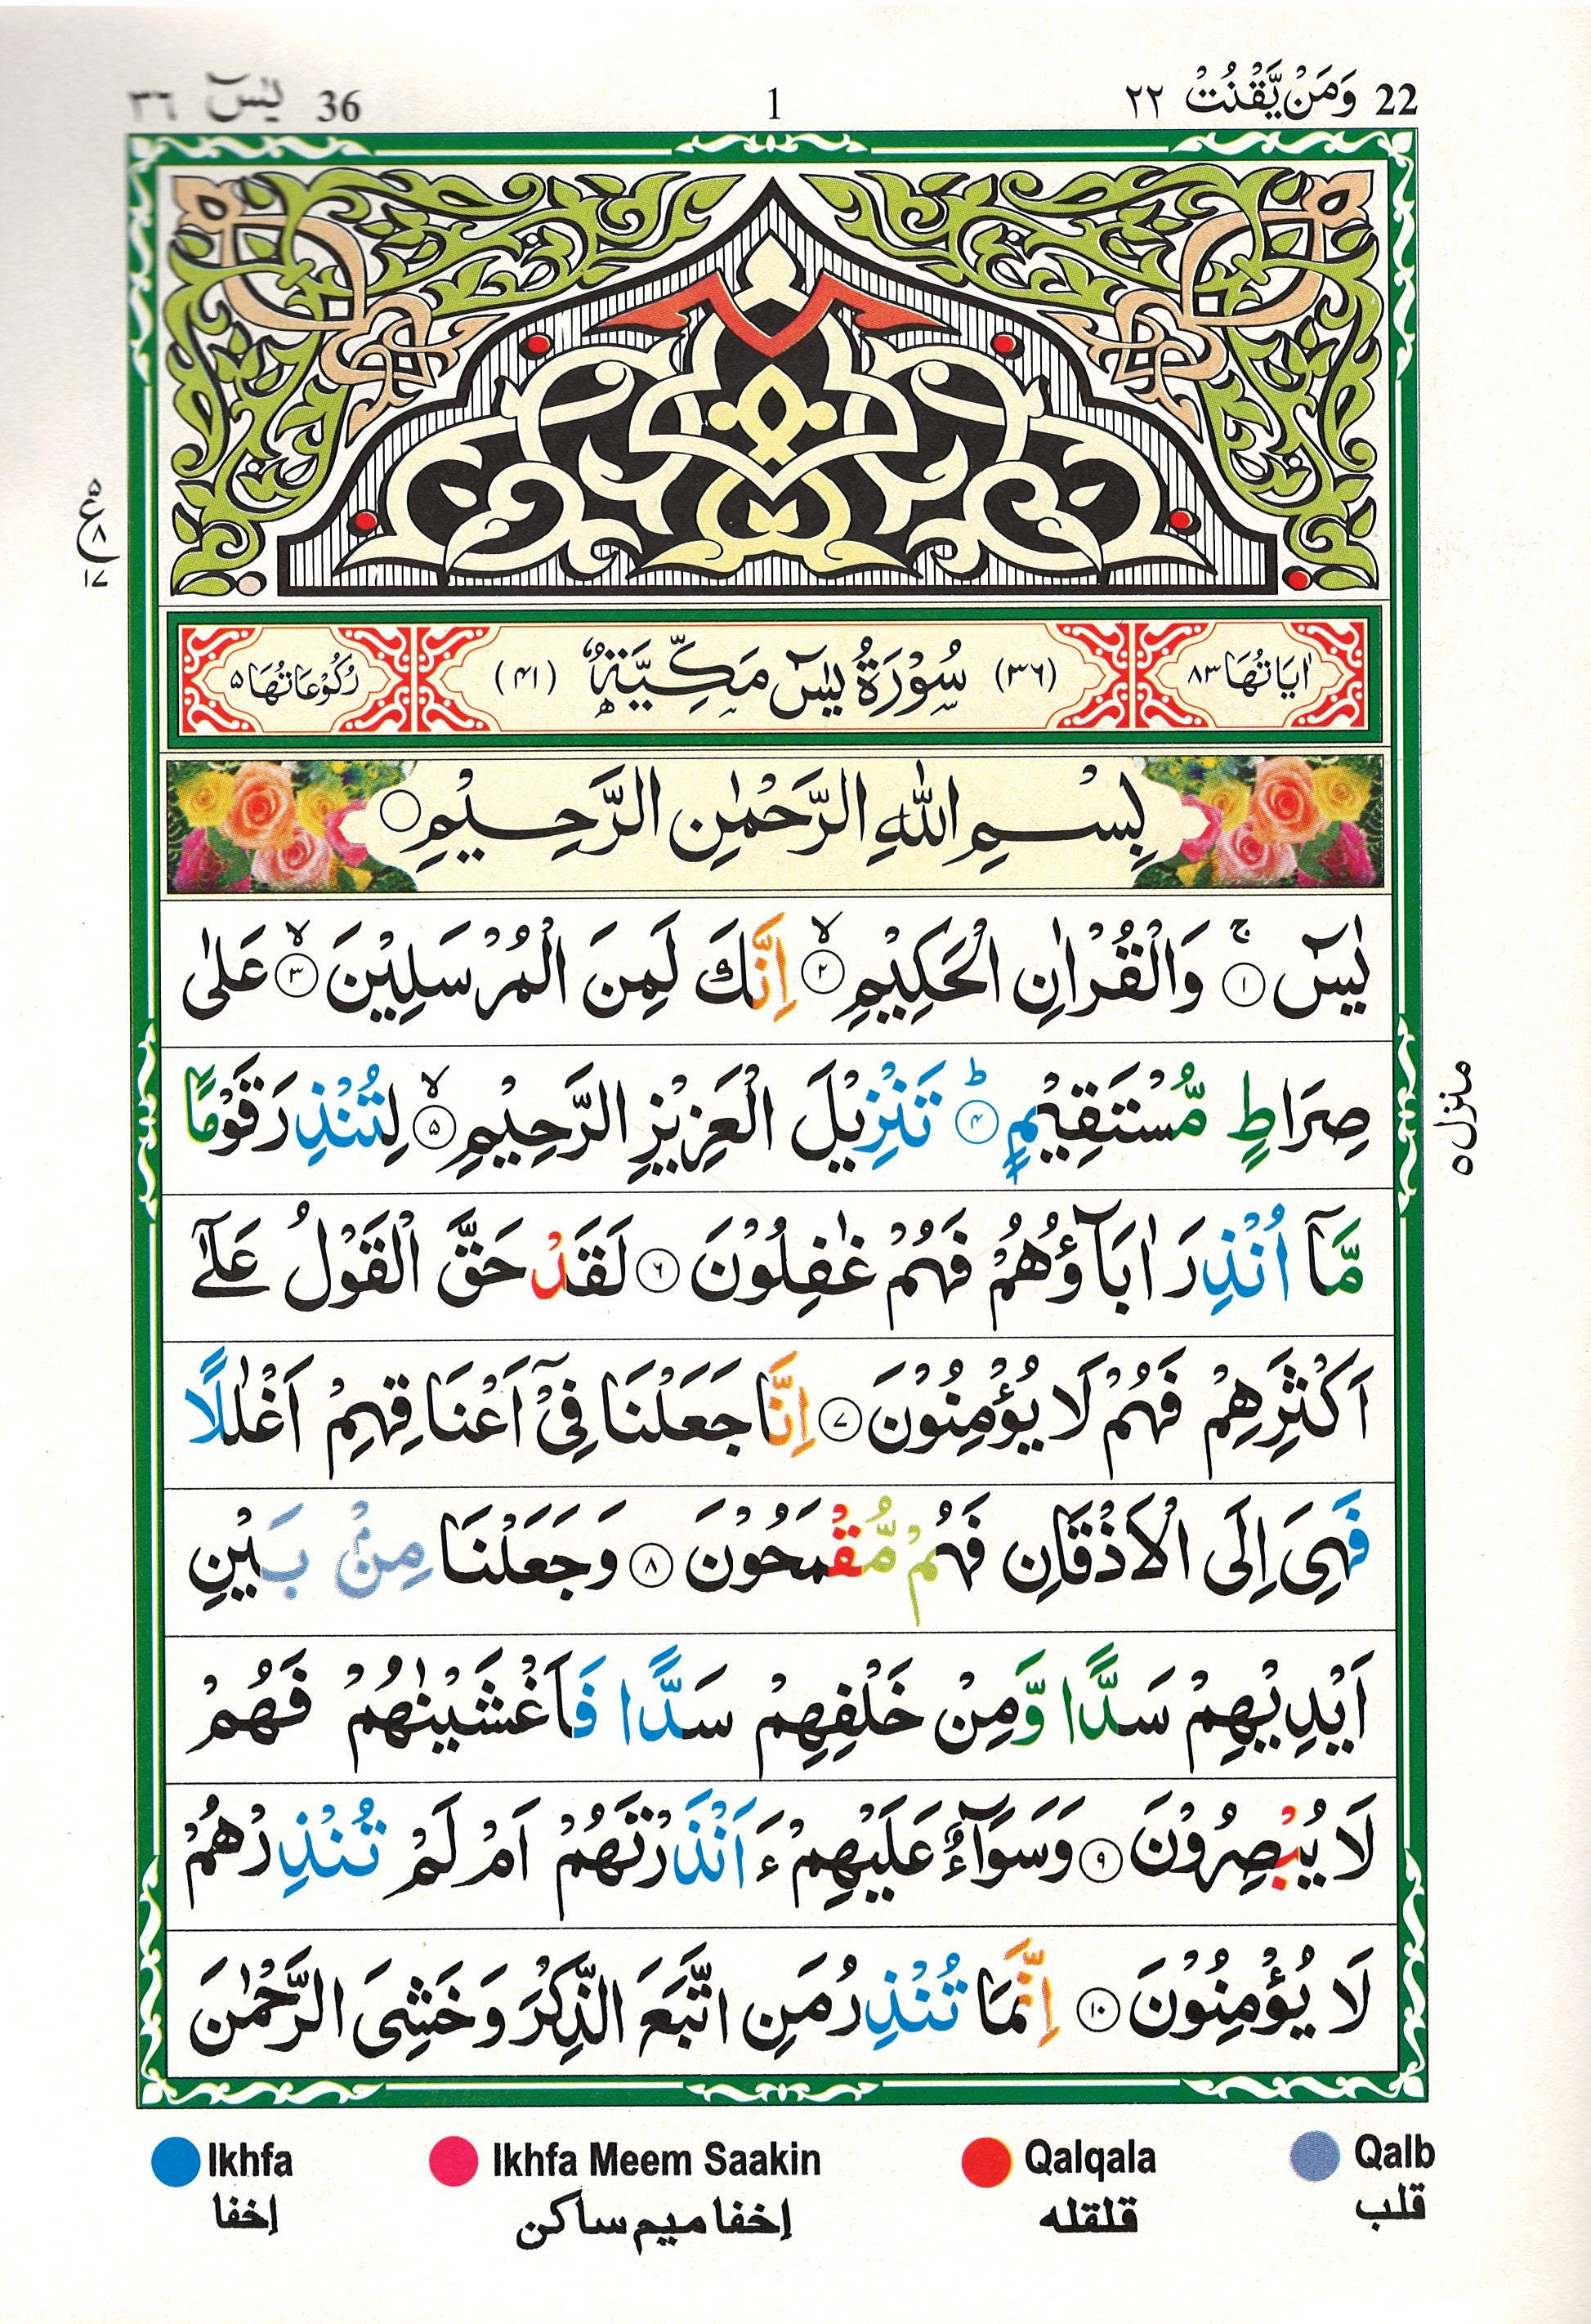 22 وَمَنْ يَّقْنُتْ ٢٢
1
36 يٰسٓ ٣٦
ع ٥ ٨ ١٧
اٰيَاتُهَا ٨٣
(٣٦) سُوْرَةُ يٰسٓ مَكِّيَّةٌ (٤١)
رُكُوْعَاتُهَا ٥
بِسْمِ اللّٰهِ الرَّحْمٰنِ الرَّحِيْمِ
يٰسٓ ۚ ۝١ وَالْقُرْاٰنِ الْحَكِيْمِ ۙ ۝٢ اِنَّكَ لَمِنَ الْمُرْسَلِيْنَ ۙ ۝٣ عَلٰى
صِرَاطٍ مُّسْتَقِيْمٍ ؕ ۝٤ تَنْزِيْلَ الْعَزِيْزِ الرَّحِيْمِ ۙ ۝٥ لِتُنْذِرَ قَوْمًا
مَّآ اُنْذِرَ اٰبَآؤُهُمْ فَهُمْ غٰفِلُوْنَ ۝٦ لَقَدْ حَقَّ الْقَوْلُ عَلٰٓى
اَكْثَرِهِمْ فَهُمْ لَا يُؤْمِنُوْنَ ۝٧ اِنَّا جَعَلْنَا فِيْٓ اَعْنَاقِهِمْ اَغْلٰلًا
فَهِيَ اِلَى الْاَذْقَانِ فَهُمْ مُّقْمَحُوْنَ ۝٨ وَجَعَلْنَا مِنْۢ بَيْنِ
اَيْدِيْهِمْ سَدًّا وَّمِنْ خَلْفِهِمْ سَدًّا فَاَغْشَيْنٰهُمْ فَهُمْ
لَا يُبْصِرُوْنَ ۝٩ وَسَوَآءٌ عَلَيْهِمْ ءَاَنْذَرْتَهُمْ اَمْ لَمْ تُنْذِرْهُمْ
لَا يُؤْمِنُوْنَ ۝١٠ اِنَّمَا تُنْذِرُ مَنِ اتَّبَعَ الذِّكْرَ وَخَشِيَ الرَّحْمٰنَ
منزل ٥
Ikhfa
اِخفا
Ikhfa Meem Saakin
اِخفا ميم ساكن
Qalqala
قلقله
Qalb
قلب